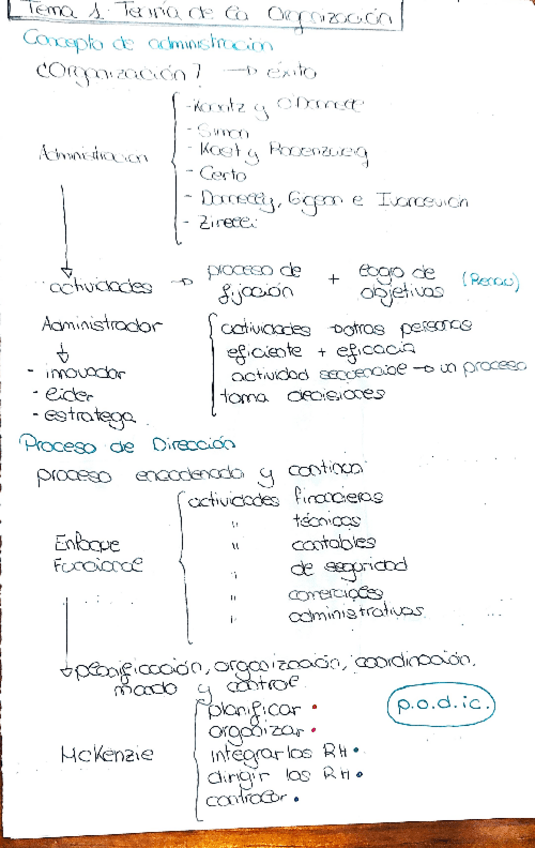 Tema 1. Teoría de la Organización
Concepto de administración
¿Organización? → éxito
Administración
- Koontz y O'Donnell
- Simon
- Kast y Rosenzweig
- Certo
- Donnelly, Gibson e Ivancevich
actividades → proceso de fijación + logro de objetivos (Renau)
Administrador
- innovador
- líder
- estratega
actividades → otras personas
eficiente + eficacia
actividad secuencial → un proceso
toma decisiones
Proceso de Dirección
proceso encadenado y continuo
Enfoque Funcional
actividades financieras
" técnicas
" contables
" de seguridad
" comerciales
" administrativas
planificación, organización, coordinación,
mando y control
p.o.d.ic.
McKenzie
planificar •
organizar •
integrar los RH •
dirigir los RH •
controlar •